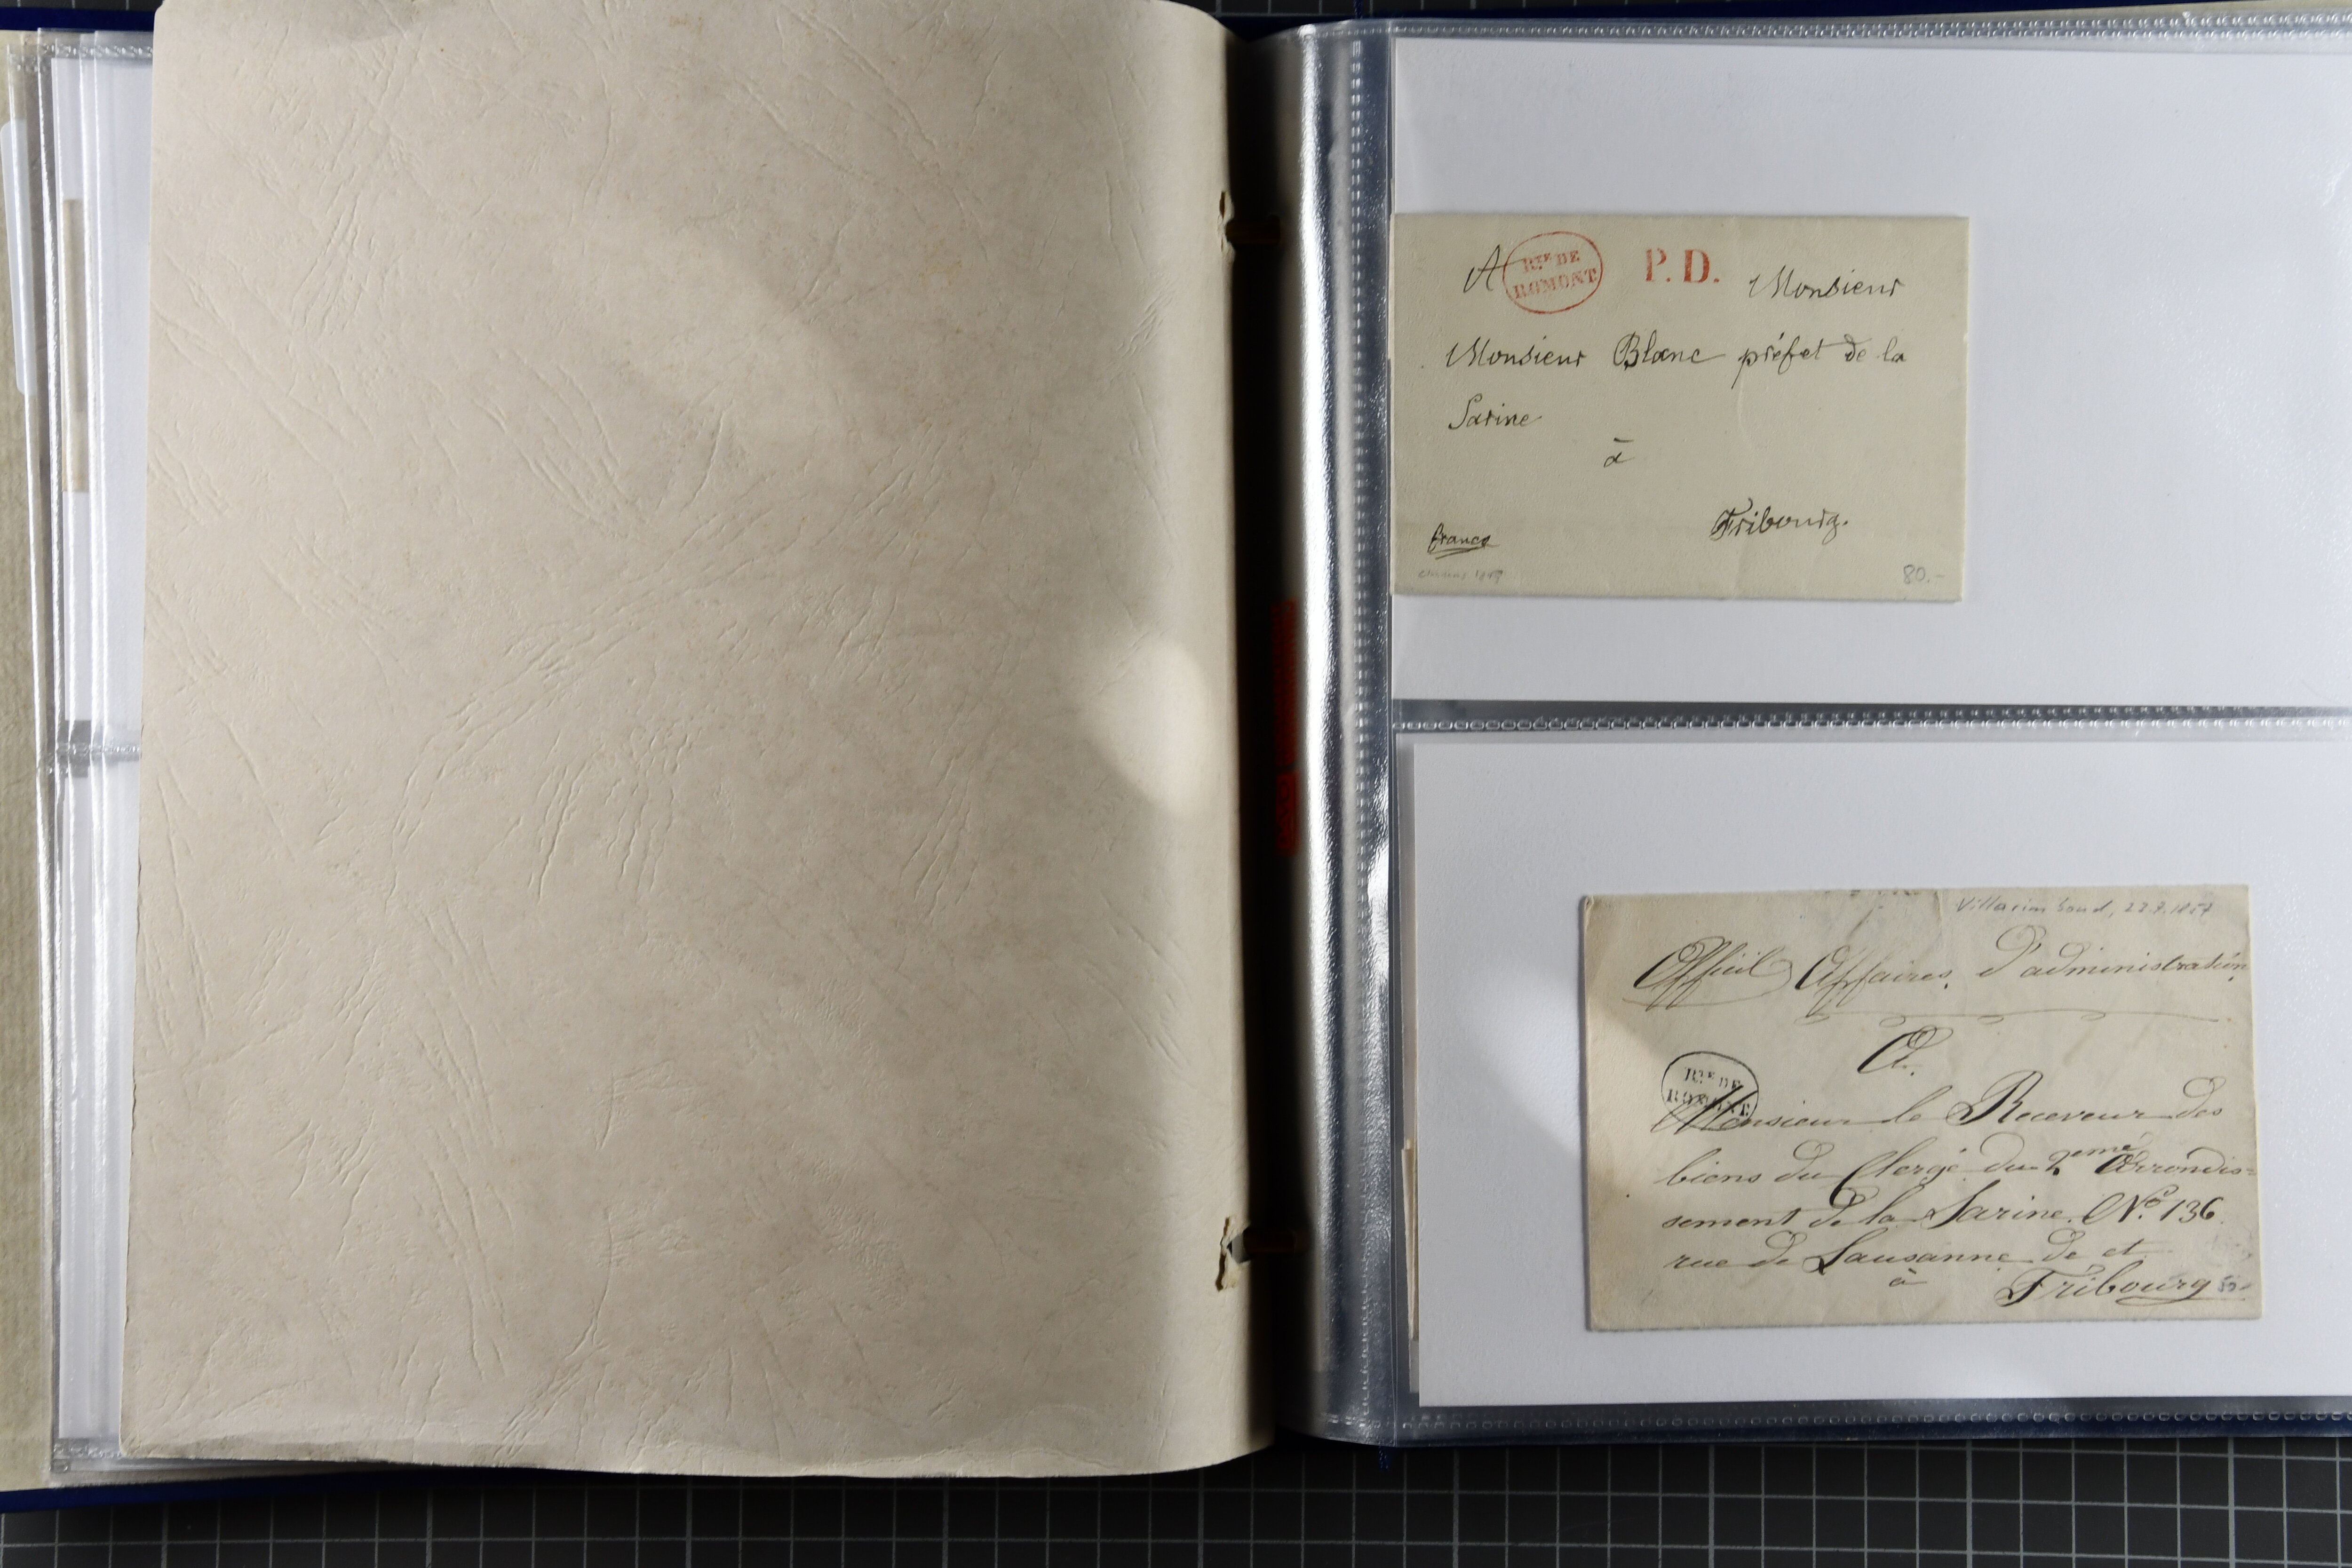 A
Rᵗᵉ DE
ROMONT
P. D.
Monsieur
Monsieur Blanc préfet de la
Sarine
à
Fribourg.
franco
80.-
Villarimboud, 22.9.1857
Officiel Affaires d'administration
A.
Rᵗᵉ DE
ROMONT
Monsieur le Receveur des
biens du Clergé du 2ᵉᵐᵉ Arrondis=
sement de la Sarine. Nº 136.
rue de Lausanne de et
à
Fribourg